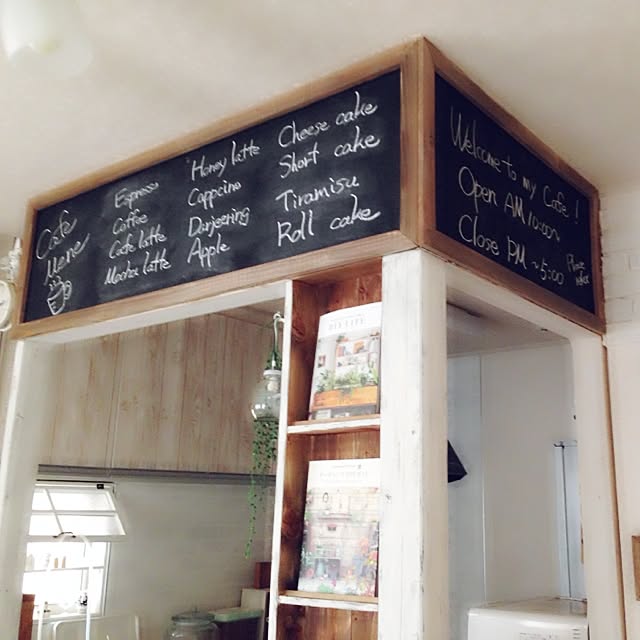 Cafe
Mene
Espresso
Coffee
Cafe latte
Mocha latte
Honey latte
Cappcino
Darjeering
Apple
Cheese cake
Short cake
Tiramisu
Roll cake
Welcome to my Cafe !
Open AM 10:00~
Close PM ~5:00
DIY LIFE